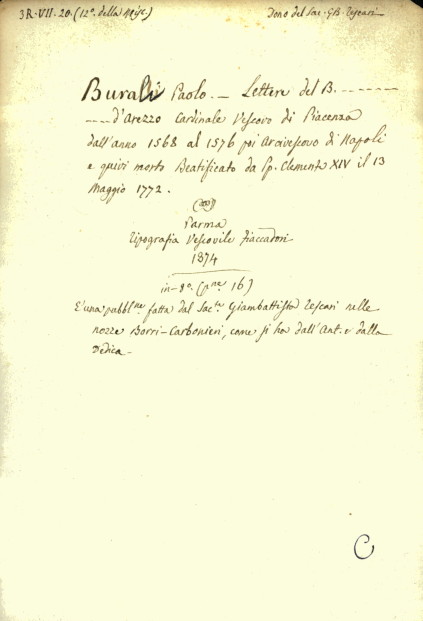 3R. VII. 20. (12°. della Misc.) Dono del Sac. GB. Tescari
Burali Paolo. — Lettere del B. --------
----d'Arezzo Cardinale Vescovo di Piacenza
dall'anno 1568 al 1576 poi Arcivescovo di Napoli
e quivi morto Beatificato da Pp. Clemente XIV il 13
Maggio 1772.
Parma
Tipografia Vescovile Fiaccadori
1874
in-8° (pne 16)
E' una pubblne fatta dal Sacte Giambattista Tescari nelle
nozze Borri-Carbonieri, come si ha dall'Ant. e dalla
Dedica —
C